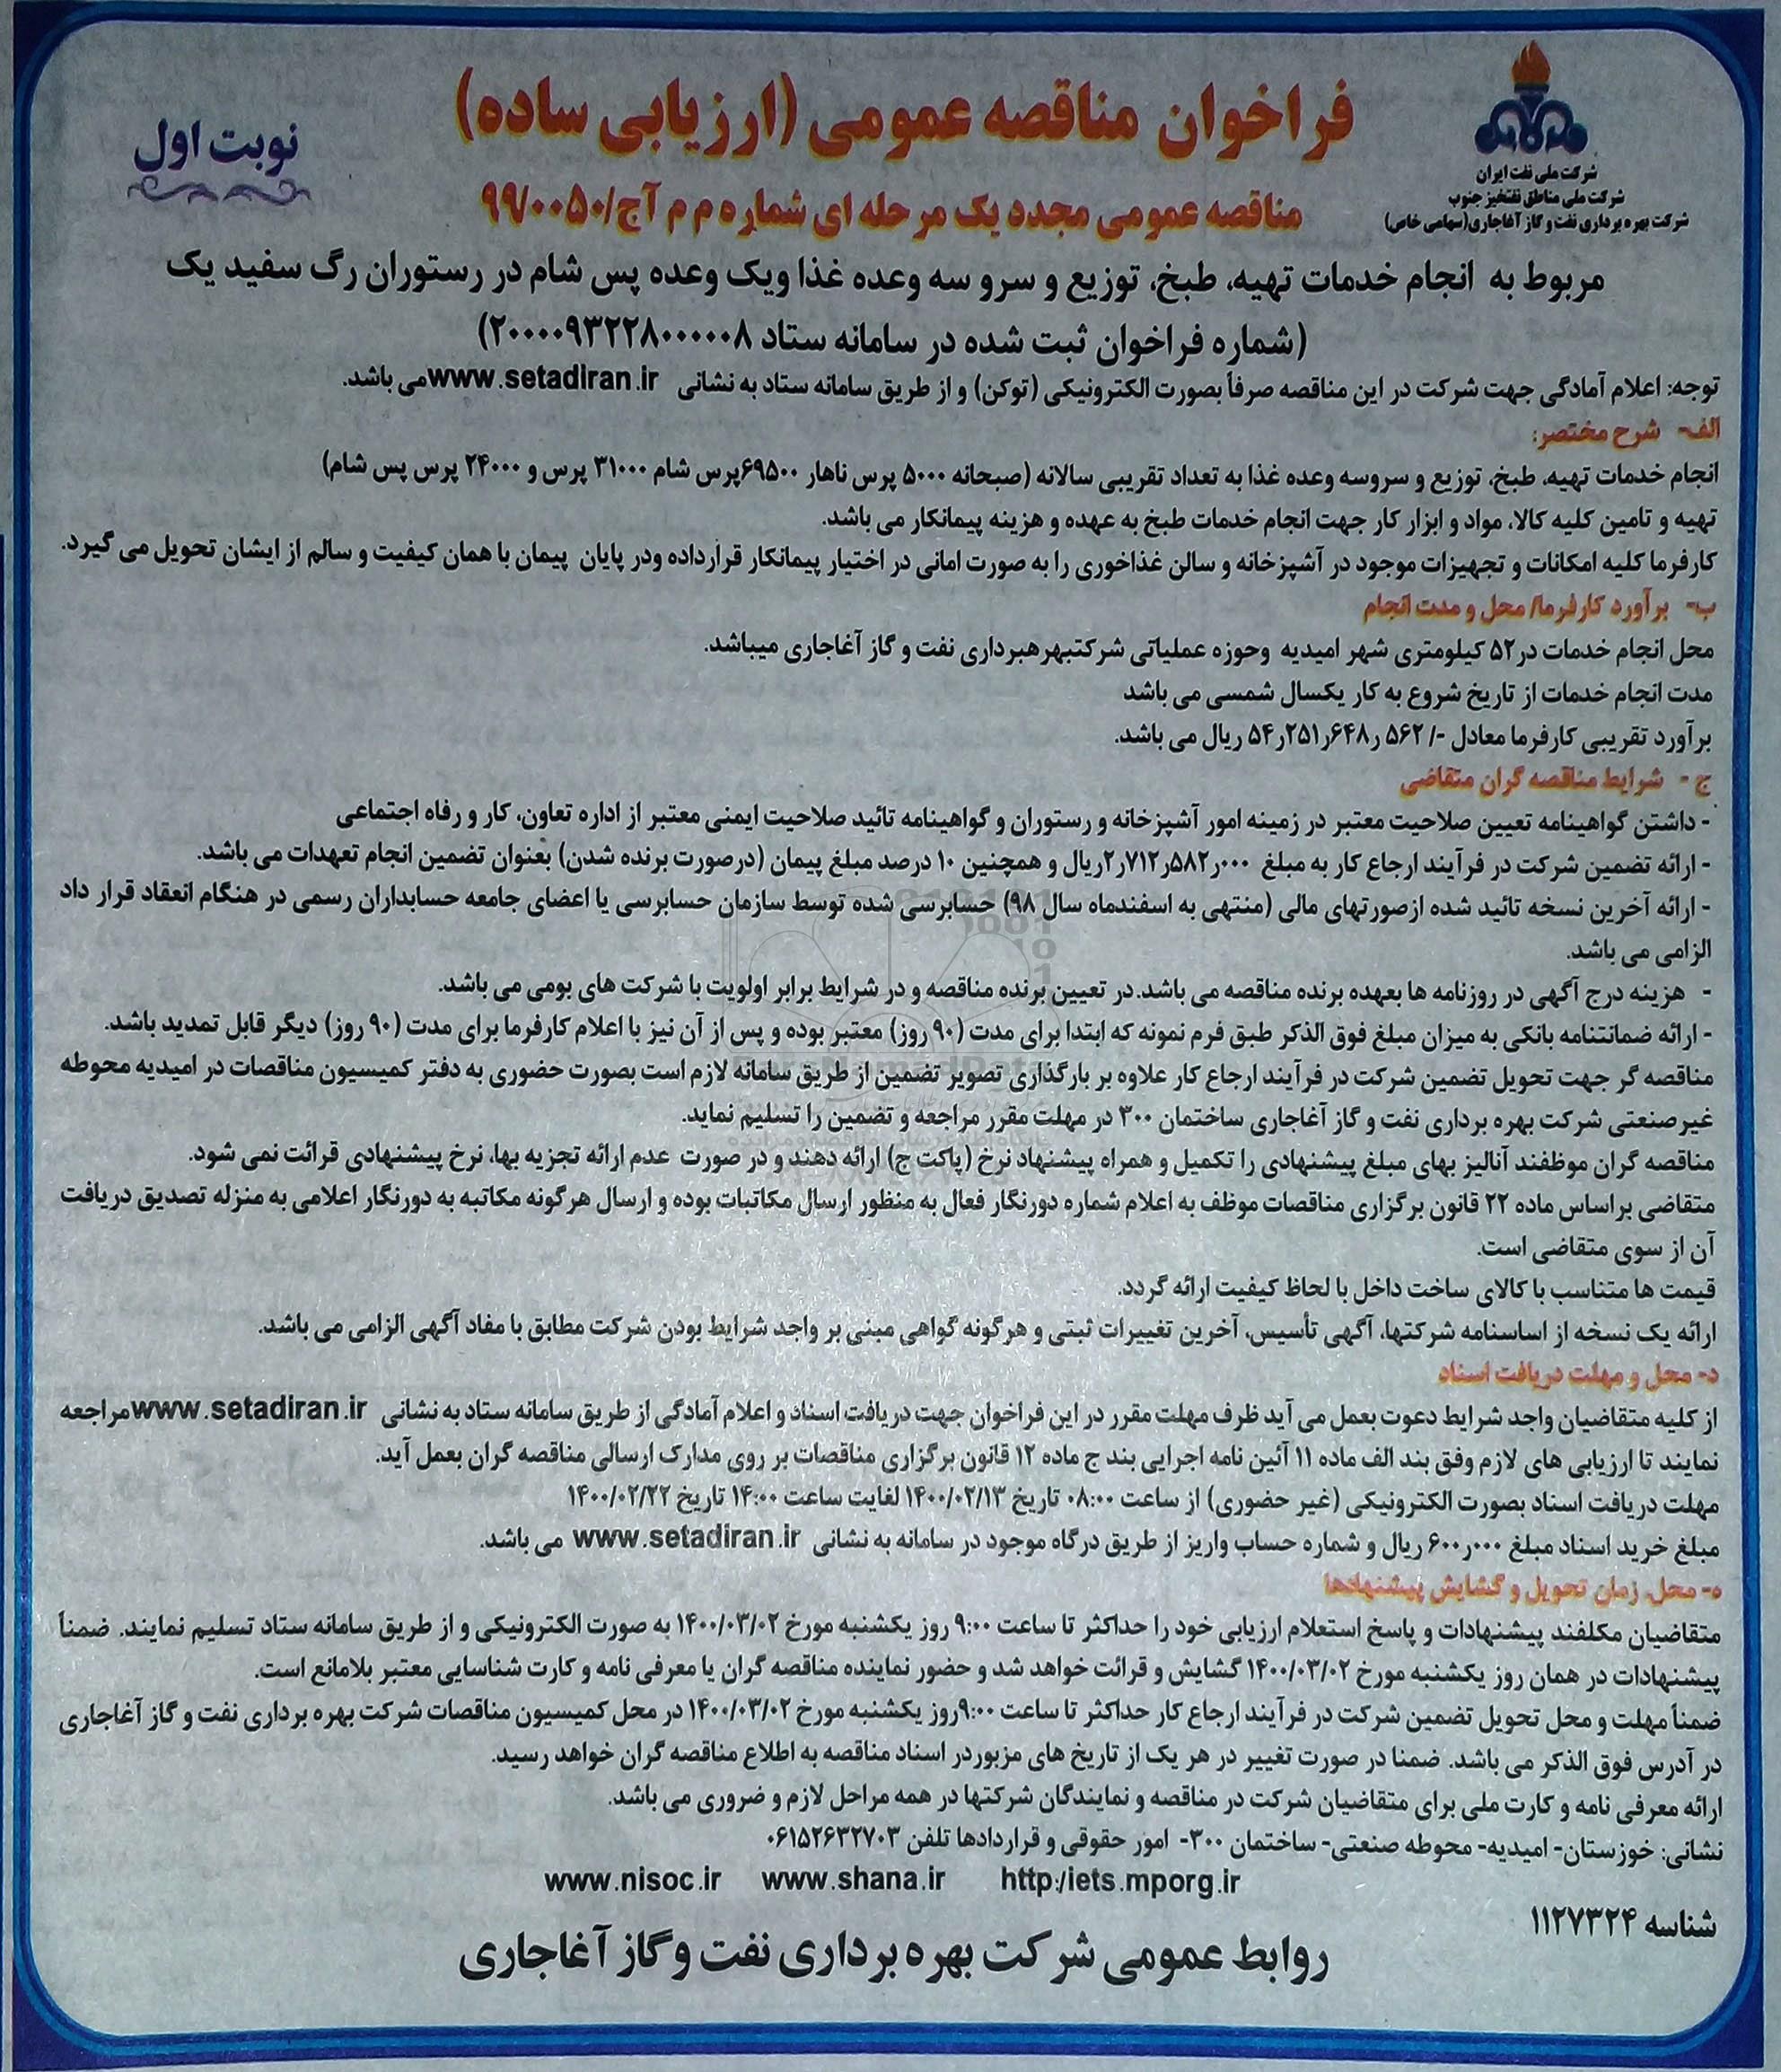 شرکت ملی نفت ایران
شرکت ملی مناطق نفتخیز جنوب
شرکت بهره برداری نفت و گاز آغاجاری(سهامی خاص)
فراخوان مناقصه عمومی (ارزیابی ساده)
نوبت اول
مناقصه عمومی مجدد یک مرحله ای شماره م م آج/۹۹/۰۰۵۰
مربوط به انجام خدمات تهیه، طبخ، توزیع و سرو سه وعده غذا ویک وعده پس شام در رستوران رگ سفید یک
(شماره فراخوان ثبت شده در سامانه ستاد ۲۰۰۰۰۹۳۲۲۸۰۰۰۰۰۸)
توجه: اعلام آمادگی جهت شرکت در این مناقصه صرفاً بصورت الکترونیکی (توکن) و از طریق سامانه ستاد به نشانی www.setadiran.ir می باشد.
الف- شرح مختصر:
انجام خدمات تهیه، طبخ، توزیع و سروسه وعده غذا به تعداد تقریبی سالانه (صبحانه ۵۰۰۰ پرس ناهار ۶۹۵۰۰پرس شام ۳۱۰۰۰ پرس و ۲۴۰۰۰ پرس پس شام)
تهیه و تامین کلیه کالا، مواد و ابزار کار جهت انجام خدمات طبخ به عهده و هزینه پیمانکار می باشد.
کارفرما کلیه امکانات و تجهیزات موجود در آشپزخانه و سالن غذاخوری را به صورت امانی در اختیار پیمانکار قرارداده ودر پایان پیمان با همان کیفیت و سالم از ایشان تحویل می گیرد.
ب- برآورد کارفرما/ محل و مدت انجام
محل انجام خدمات در۵۲ کیلومتری شهر امیدیه وحوزه عملیاتی شرکتبهرهبرداری نفت و گاز آغاجاری میباشد.
مدت انجام خدمات از تاریخ شروع به کار یکسال شمسی می باشد
برآورد تقریبی کارفرما معادل -/ ۵۶۲ر۶۴۸ر۲۵۱ر۵۴ ریال می باشد.
ج - شرایط مناقصه گران متقاضی
- داشتن گواهینامه تعیین صلاحیت معتبر در زمینه امور آشپزخانه و رستوران و گواهینامه تائید صلاحیت ایمنی معتبر از اداره تعاون، کار و رفاه اجتماعی
- ارائه تضمین شرکت در فرآیند ارجاع کار به مبلغ ۰۰۰ر۵۸۲ر۷۱۲ر۲ریال و همچنین ۱۰ درصد مبلغ پیمان (درصورت برنده شدن) بعنوان تضمین انجام تعهدات می باشد.
- ارائه آخرین نسخه تائید شده ازصورتهای مالی (منتهی به اسفندماه سال ۹۸) حسابرسی شده توسط سازمان حسابرسی یا اعضای جامعه حسابداران رسمی در هنگام انعقاد قرار داد
الزامی می باشد.
- هزینه درج آگهی در روزنامه ها بعهده برنده مناقصه می باشد.در تعیین برنده مناقصه و در شرایط برابر اولویت با شرکت های بومی می باشد.
- ارائه ضمانتنامه بانکی به میزان مبلغ فوق الذکر طبق فرم نمونه که ابتدا برای مدت (۹۰ روز) معتبر بوده و پس از آن نیز با اعلام کارفرما برای مدت (۹۰ روز) دیگر قابل تمدید باشد.
مناقصه گر جهت تحویل تضمین شرکت در فرآیند ارجاع کار علاوه بر بارگذاری تصویر تضمین از طریق سامانه لازم است بصورت حضوری به دفتر کمیسیون مناقصات در امیدیه محوطه
غیرصنعتی شرکت بهره برداری نفت و گاز آغاجاری ساختمان ۳۰۰ در مهلت مقرر مراجعه و تضمین را تسلیم نماید.
مناقصه گران موظفند آنالیز بهای مبلغ پیشنهادی را تکمیل و همراه پیشنهاد نرخ (پاکت ج) ارائه دهند و در صورت عدم ارائه تجزیه بها، نرخ پیشنهادی قرائت نمی شود.
متقاضی براساس ماده ۲۲ قانون برگزاری مناقصات موظف به اعلام شماره دورنگار فعال به منظور ارسال مکاتبات بوده و ارسال هرگونه مکاتبه به دورنگار اعلامی به منزله تصدیق دریافت
آن از سوی متقاضی است.
قیمت ها متناسب با کالای ساخت داخل با لحاظ کیفیت ارائه گردد.
ارائه یک نسخه از اساسنامه شرکتها، آگهی تأسیس، آخرین تغییرات ثبتی و هرگونه گواهی مبنی بر واجد شرایط بودن شرکت مطابق با مفاد آگهی الزامی می باشد.
د- محل و مهلت دریافت اسناد
از کلیه متقاضیان واجد شرایط دعوت بعمل می آید ظرف مهلت مقرر در این فراخوان جهت دریافت اسناد و اعلام آمادگی از طریق سامانه ستاد به نشانی www.setadiran.ir مراجعه
نمایند تا ارزیابی های لازم وفق بند الف ماده ۱۱ آئین نامه اجرایی بند ج ماده ۱۲ قانون برگزاری مناقصات بر روی مدارک ارسالی مناقصه گران بعمل آید.
مهلت دریافت اسناد بصورت الکترونیکی (غیر حضوری) از ساعت ۰۸:۰۰ تاریخ ۱۴۰۰/۰۲/۱۳ لغایت ساعت ۱۴:۰۰ تاریخ ۱۴۰۰/۰۲/۲۲
مبلغ خرید اسناد مبلغ ۰۰۰ر۶۰۰ ریال و شماره حساب واریز از طریق درگاه موجود در سامانه به نشانی www.setadiran.ir می باشد.
ه- محل، زمان تحویل و گشایش پیشنهادها
متقاضیان مکلفند پیشنهادات و پاسخ استعلام ارزیابی خود را حداکثر تا ساعت ۹:۰۰ روز یکشنبه مورخ ۱۴۰۰/۰۳/۰۲ به صورت الکترونیکی و از طریق سامانه ستاد تسلیم نمایند. ضمناً
پیشنهادات در همان روز یکشنبه مورخ ۱۴۰۰/۰۳/۰۲ گشایش و قرائت خواهد شد و حضور نماینده مناقصه گران با معرفی نامه و کارت شناسایی معتبر بلامانع است.
ضمناً مهلت و محل تحویل تضمین شرکت در فرآیند ارجاع کار حداکثر تا ساعت ۹:۰۰روز یکشنبه مورخ ۱۴۰۰/۰۳/۰۲ در محل کمیسیون مناقصات شرکت بهره برداری نفت و گاز آغاجاری
در آدرس فوق الذکر می باشد. ضمنا در صورت تغییر در هر یک از تاریخ های مزبوردر اسناد مناقصه به اطلاع مناقصه گران خواهد رسید.
ارائه معرفی نامه و کارت ملی برای متقاضیان شرکت در مناقصه و نمایندگان شرکتها در همه مراحل لازم و ضروری می باشد.
نشانی: خوزستان- امیدیه- محوطه صنعتی- ساختمان ۳۰۰- امور حقوقی و قراردادها تلفن ۰۶۱۵۲۶۳۲۷۰۳
www.nisoc.ir www.shana.ir http:/iets.mporg.ir
شناسه ۱۱۲۷۳۲۴
روابط عمومی شرکت بهره برداری نفت و گاز آغاجاری